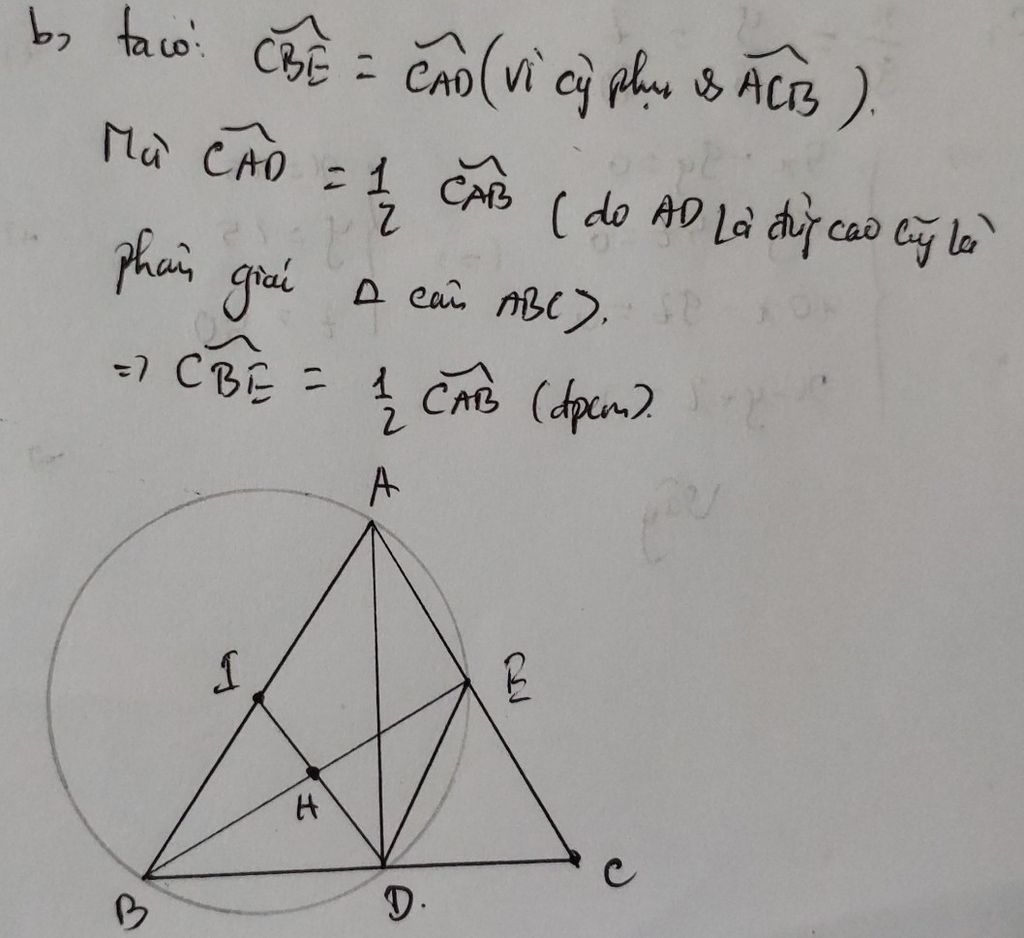 b, ta có: CBE = CAD (vì cg̀ phụ & ACB).
Mà CAD = 1/2 CAB (do AD là đg̀ cao cg̃ là
phân giác Δ cân ABC).
=> CBE = 1/2 CAB (đpcm).
A
I
E
H
B
D.
C